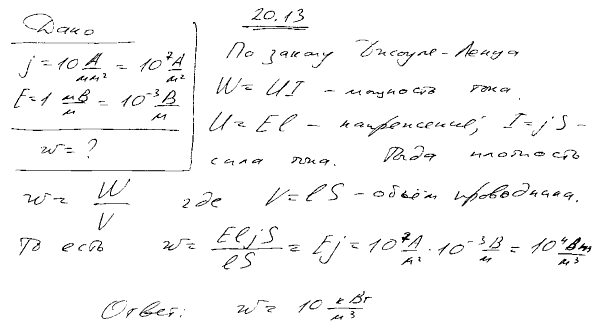 20.13
Дано
j = 10 А/мм² = 10⁷ А/м²
E = 1 мВ/м = 10⁻³ В/м
w = ?
По закону Джоуля-Ленца
W = UI - мощность тока.
U = El - напряжение; I = jS -
сила тока. Тогда плотность
w = W/V где V = lS - объём проводника.
То есть w = EljS/lS = Ej = 10⁷ А/м² · 10⁻³ В/м = 10⁴ Вт/м³
Ответ: w = 10 кВт/м³